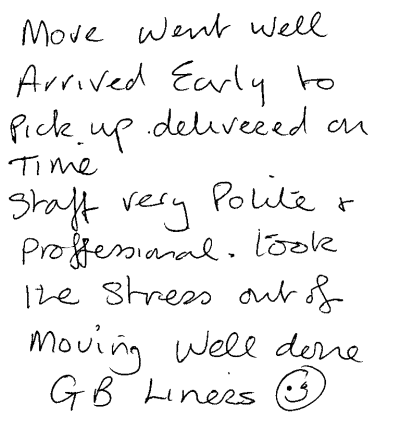 Move went well
Arrived Early to
Pick up delivered on
Time
Staff very Polite +
Proffessional. took
the stress out of
Moving Well done
GB Liners